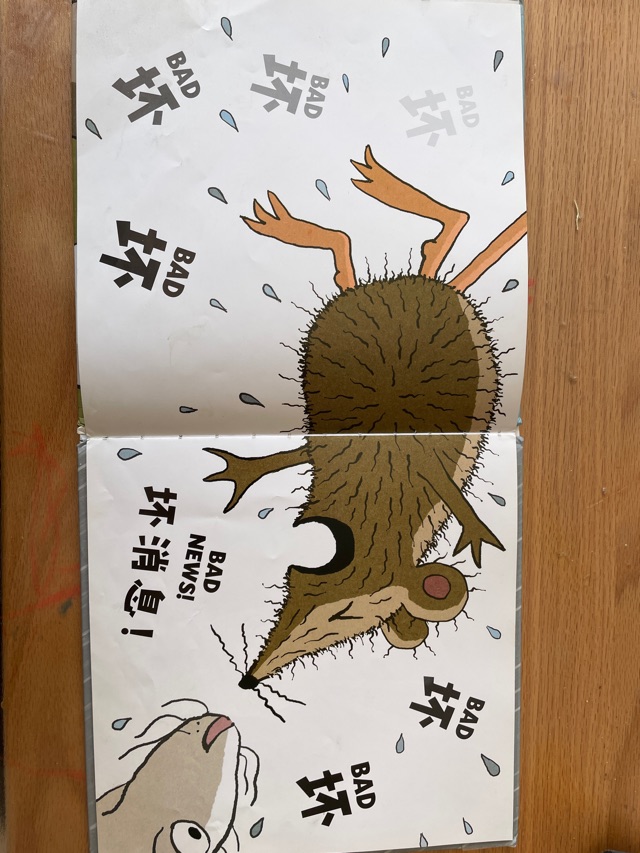 BAD
坏
BAD
坏
BAD
坏
BAD
坏
BAD
坏
BAD
坏
BAD
NEWS!
坏消息！